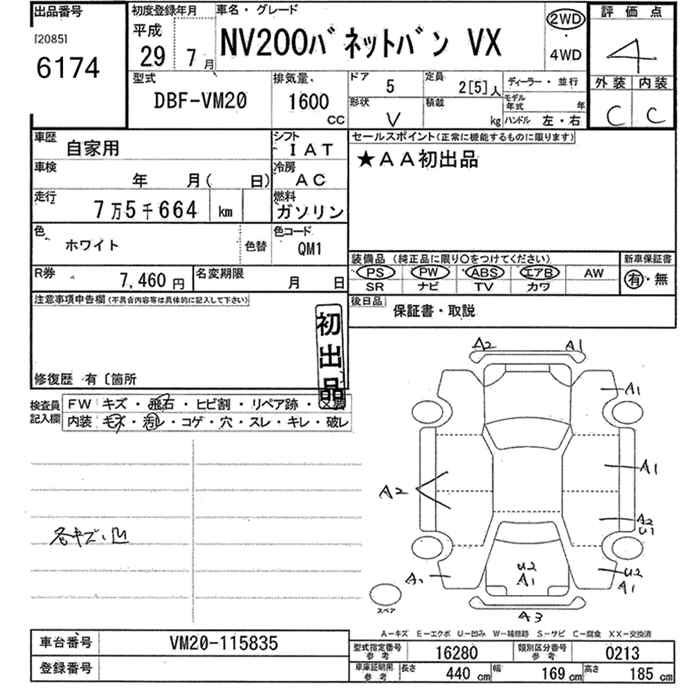 出品番号
[2085]
6174
初度登録年月
平成
29 7月
車名・グレード
NV200バネットバン VX
2WD
4WD
評価点
4
外装 内装
C C
型式
DBF-VM20
排気量
1600
CC
ドア 5
定員 2[5]人
ディーラー・並行
形状 V
積載 kg
モデル年式 年
ハンドル 左・右
車歴 自家用
シフト IAT
車検 年 月( 日)
冷房 AC
走行 7万5千664 km
燃料 ガソリン
色 ホワイト
色替
色コード QM1
R券 7,460円
名変期限 月 日
セールスポイント(正常に機能するものに限ります)
★AA初出品
装備品 (純正品に限り〇をつけてください)
新車保証書
PS PW ABS エアB AW
有・無
SR ナビ TV カワ
後日品
保証書・取説
注意事項申告欄(不具合内容等は具体的に記入して下さい)
初出品
修復歴 有〔箇所
検査員記入欄
FW キズ・飛石・ヒビ割・リペア跡・交換
内装 キズ・汚レ・コゲ・穴・スレ・キレ・破レ
各キズ凹
A2 A1
A1
A2
A1
A2
U1
U2
A1
U2
A1
A2
A3
スペア
A-キズ E-エクボ U-凹み W-補修跡 S-サビ C-腐食 XX-交換済
車台番号 VM20-115835
登録番号
型式指定番号 参考 16280
類別区分番号 参考 0213
車庫証明用 参考 長さ 440 cm 幅 169 cm 高さ 185 cm